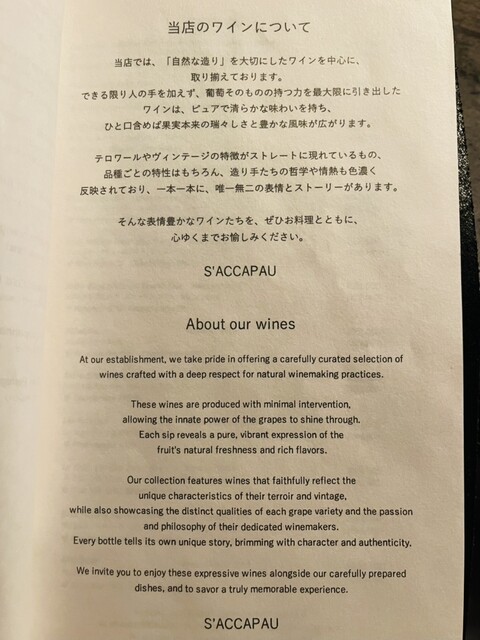 当店のワインについて
当店では、「自然な造り」を大切にしたワインを中心に、
取り揃えております。
できる限り人の手を加えず、葡萄そのものの持つ力を最大限に引き出した
ワインは、ピュアで清らかな味わいを持ち、
ひと口含めば果実本来の瑞々しさと豊かな風味が広がります。
テロワールやヴィンテージの特徴がストレートに現れているもの、
品種ごとの特性はもちろん、造り手たちの哲学や情熱も色濃く
反映されており、一本一本に、唯一無二の表情とストーリーがあります。
そんな表情豊かなワインたちを、ぜひお料理とともに、
心ゆくまでお愉しみください。
S'ACCAPAU
About our wines
At our establishment, we take pride in offering a carefully curated selection of
wines crafted with a deep respect for natural winemaking practices.
These wines are produced with minimal intervention,
allowing the innate power of the grapes to shine through.
Each sip reveals a pure, vibrant expression of the
fruit's natural freshness and rich flavors.
Our collection features wines that faithfully reflect the
unique characteristics of their terroir and vintage,
while also showcasing the distinct qualities of each grape variety and the passion
and philosophy of their dedicated winemakers.
Every bottle tells its own unique story, brimming with character and authenticity.
We invite you to enjoy these expressive wines alongside our carefully prepared
dishes, and to savor a truly memorable experience.
S'ACCAPAU